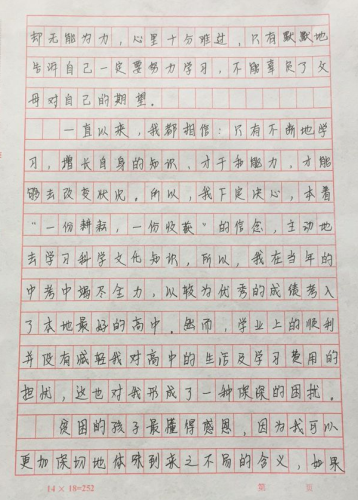 却无能为力，心里十分难过，只有默默地
告诉自己一定要努力学习，不能辜负了父
母对自己的期望。
一直以来，我都相信：只有不断地学
习，增长自身的知识、才干和能力，才能
够去改变状况。所以，我下定决心，本着
“一份耕耘，一份收获”的信念，主动地
去学习科学文化知识，所以，我在当年的
中考中竭尽全力，以较为优秀的成绩考入
了本地最好的高中。然而，学业上的顺利
并没有减轻我对高中的生活及学习费用的
担扰，这也对我形成了一种深深的困扰。
贫困的孩子最懂得感恩，因为我可以
更加深切地体味到来之不易的含义，如果
14 × 18=252 第 页